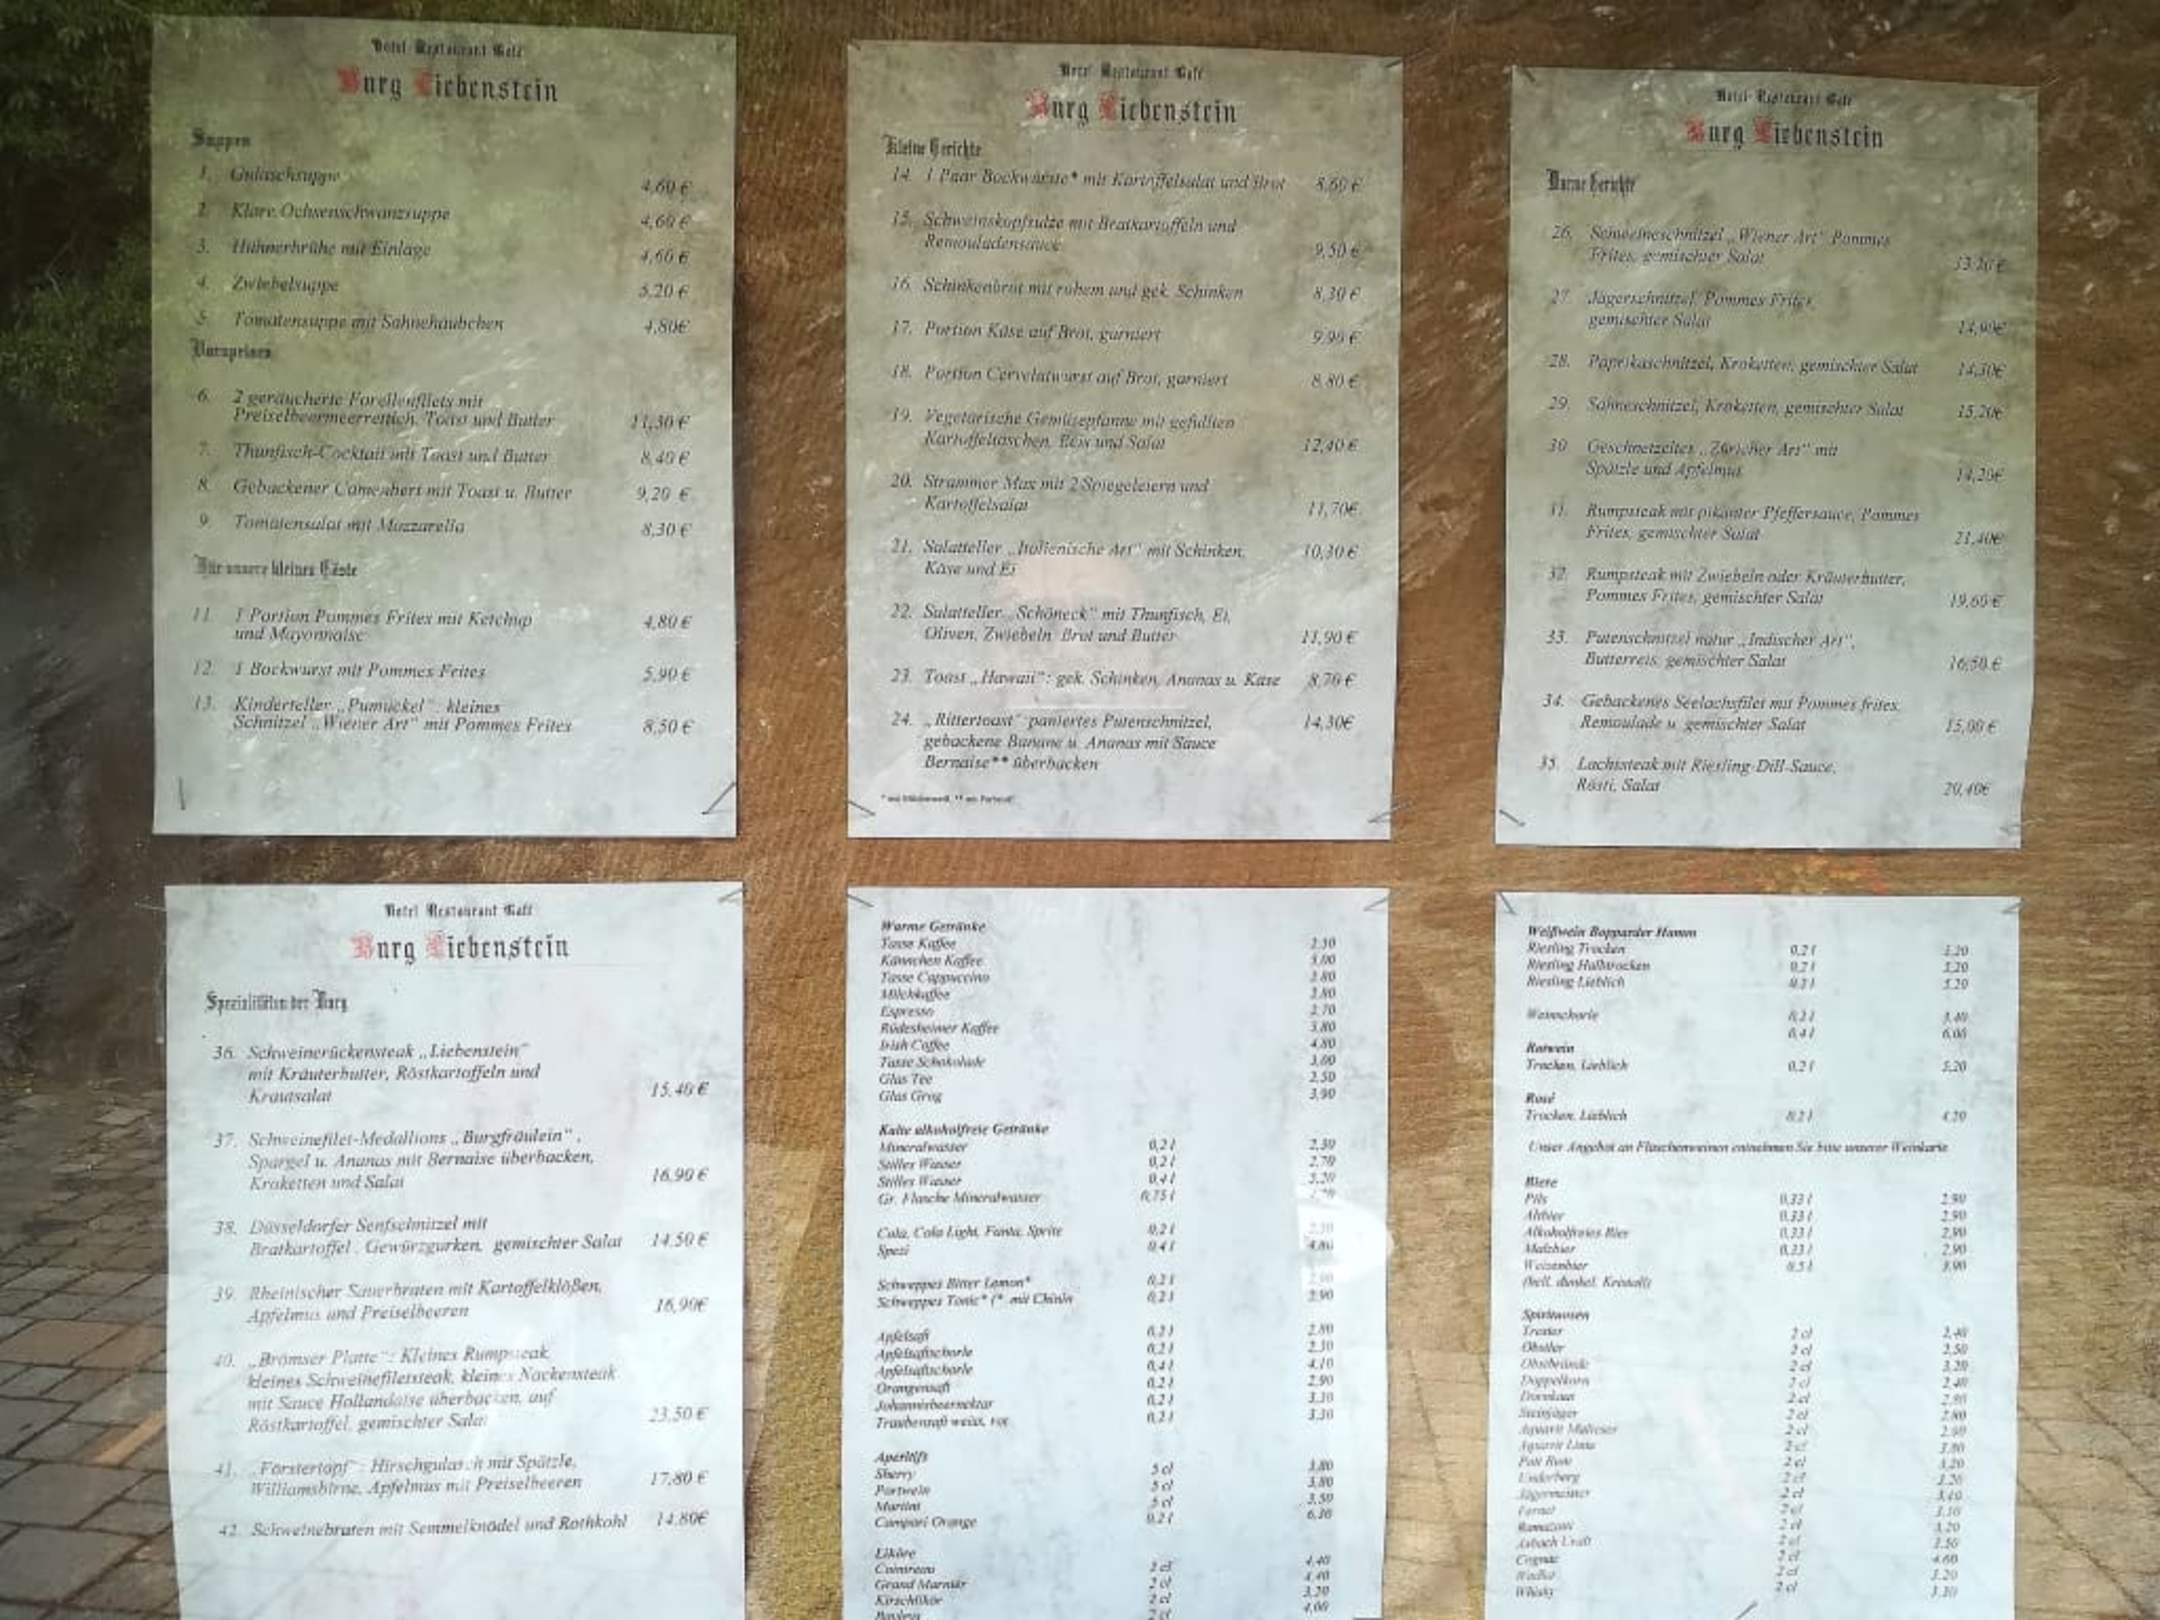 Hotel Restaurant Café
Burg Liebenstein
Suppen
1. Gulaschsuppe 4,60 €
2. Klare Ochsenschwanzsuppe 4,60 €
3. Hühnerbrühe mit Einlage 4,60 €
4. Zwiebelsuppe 5,20 €
5. Tomatensuppe mit Sahnehäubchen 4,80€
Vorspeisen
6. 2 geräucherte Forellenfilets mit
Preiselbeermeerrettich, Toast und Butter 11,30 €
7. Thunfisch-Cocktail mit Toast und Butter 8,40 €
8. Gebackener Camenbert mit Toast u. Butter 9,20 €
9. Tomatensalat mit Mozzarella 8,30 €
Für unsere kleinen Gäste
11. 1 Portion Pommes Frites mit Ketchup
und Mayonnaise 4,80 €
12. 1 Bockwurst mit Pommes Frites 5,90 €
13. Kinderteller „Pumuckel": kleines
Schnitzel „Wiener Art" mit Pommes Frites 8,50 €
Hotel Restaurant Café
Burg Liebenstein
Kleine Gerichte
14. 1 Paar Bockwürste* mit Kartoffelsalat und Brot 8,60 €
15. Schweinskopfsülze mit Bratkartoffeln und
Remouladensauce 9,50 €
16. Schinkenbrot mit rohem und gek. Schinken 8,30 €
17. Portion Käse auf Brot, garniert 9,90 €
18. Portion Cervelatwurst auf Brot, garniert 8,80 €
19. Vegetarische Gemüsepfanne mit gefüllten
Kartoffeltaschen, Reis und Salat 12,40 €
20. Strammer Max mit 2 Spiegeleiern und
Kartoffelsalat 11,70€
21. Salatteller „Italienische Art" mit Schinken, 10,30 €
Käse und Ei
22. Salatteller „Schöneck" mit Thunfisch, Ei,
Oliven, Zwiebeln Brot und Butter 11,90 €
23. Toast „Hawaii": gek. Schinken, Ananas u. Käse 8,70 €
24. „Rittertoast" paniertes Putenschnitzel, 14,30€
gebackene Banane u. Ananas mit Sauce
Bernaise** überbacken
Hotel Restaurant Café
Burg Liebenstein
Warme Gerichte
26. Schweineschnitzel „Wiener Art" Pommes
Frites, gemischter Salat 13,20 €
27. Jägerschnitzel, Pommes Frites,
gemischter Salat 14,90€
28. Paprikaschnitzel, Kroketten, gemischter Salat 14,30€
29. Sahneschnitzel, Kroketten, gemischter Salat 15,20€
30. Geschnetzeltes „Züricher Art" mit
Spätzle und Apfelmus 14,20€
31. Rumpsteak mit pikanter Pfeffersauce, Pommes
Frites, gemischter Salat 21,40€
32. Rumpsteak mit Zwiebeln oder Kräuterbutter,
Pommes Frites, gemischter Salat 19,60 €
33. Putenschnitzel natur „Indischer Art",
Butterreis, gemischter Salat 16,50 €
34. Gebackenes Seelachsfilet mit Pommes frites,
Remoulade u. gemischter Salat 15,00 €
35. Lachssteak mit Riesling-Dill-Sauce,
Rösti, Salat 20,40€
Hotel Restaurant Café
Burg Liebenstein
Spezialitäten der Burg
36. Schweinerückensteak „Liebenstein"
mit Kräuterbutter, Röstkartoffeln und
Krautsalat 15,40 €
37. Schweinefilet-Medallions „Burgfräulein",
Spargel u. Ananas mit Bernaise überbacken,
Kroketten und Salat 16,90 €
38. Düsseldorfer Senfschnitzel mit
Bratkartoffel, Gewürzgurken, gemischter Salat 14,50 €
39. Rheinischer Sauerbraten mit Kartoffelklößen,
Apfelmus und Preiselbeeren 16,90€
40. „Brömser Platte": Kleines Rumpsteak,
kleines Schweinefiletsteak, kleines Nackensteak
mit Sauce Hollandaise überbacken, auf
Röstkartoffel, gemischter Salat 23,50 €
41. „Förstertopf": Hirschgulasch mit Spätzle,
Williamsbirne, Apfelmus mit Preiselbeeren 17,80 €
42. Schweinebraten mit Semmelknödel und Rothkohl 14,80€
Warme Getränke
Tasse Kaffee 2,30
Kännchen Kaffee
Tasse Cappuccino 2,80
Milchkaffee
Espresso 2,70
Rüdesheimer Kaffee
Irish Coffee 4,80
Tasse Schokolade
Glas Tee 2,50
Glas Grog 3,90
Kalte alkoholfreie Getränke
Mineralwasser 0,2 l 2,30
Stilles Wasser 0,2 l 2,70
Stilles Wasser 0,4 l
Gr. Flasche Mineralwasser 0,75 l
Cola, Cola Light, Fanta, Sprite 0,2 l
Spezi 0,4 l 4,80
Schweppes Bitter Lemon* 0,2 l
Schweppes Tonic* (* mit Chinin 0,2 l 2,90
Apfelsaft 0,2 l 2,80
Apfelsaftschorle 0,2 l
Apfelsaftschorle 0,4 l 4,10
Orangensaft 0,2 l 2,90
Johannisbeernektar 0,2 l 3,30
Traubensaft weiss, rot 0,2 l 3,30
Aperitifs
Sherry 5 cl 3,80
Portwein 5 cl 3,80
Martini 5 cl 3,50
Campari Orange 0,2 l
Liköre
Cointreau 2 cl 4,40
Grand Marnier 2 cl 4,40
Kirschlikör 2 cl 3,20
Baileys 2 cl 4,00
Weißwein Bopparder Hamm
Riesling Trocken 0,2 l 5,20
Riesling Halbtrocken 0,2 l 5,20
Riesling Lieblich 0,2 l 5,20
Weinschorle 0,2 l
0,4 l 6,00
Rotwein
Trocken, Lieblich 0,2 l 5,20
Rosé
Trocken, Lieblich 0,2 l
Unser Angebot an Flaschenweinen entnehmen Sie bitte unserer Weinkarte
Biere
Pils 0,33 l 2,90
Altbier 0,33 l 2,90
Alkoholfreies Bier 0,33 l 2,90
Malzbier 0,33 l 2,90
Weizenbier 0,5 l 3,90
(hell, dunkel, Kristall)
Spirituosen
Trester 2 cl 2,40
Obstler 2 cl 2,50
Obstbrände 2 cl 3,20
Doppelkorn 2 cl 2,40
Doornkaat 2 cl
Steinhäger 2 cl
Aquavit Malteser 2 cl
Aquavit Linie 2 cl
Pott Rum 2 cl 3,20
Underberg 2 cl
Jägermeister 2 cl
Fernet 2 cl
Ramazotti 2 cl 3,20
Asbach Uralt 2 cl
Cognac 2 cl 4,60
Wodka 2 cl 3,20
Whisky 2 cl